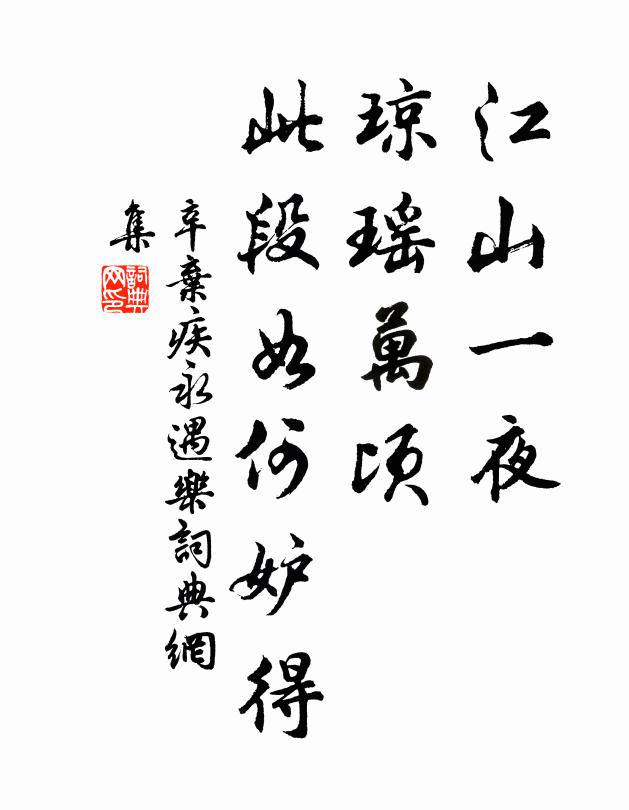 江山一夜
琼瑶萬頃
此段如何妒得
辛棄疾永遇樂詞典網
集
詞典網印